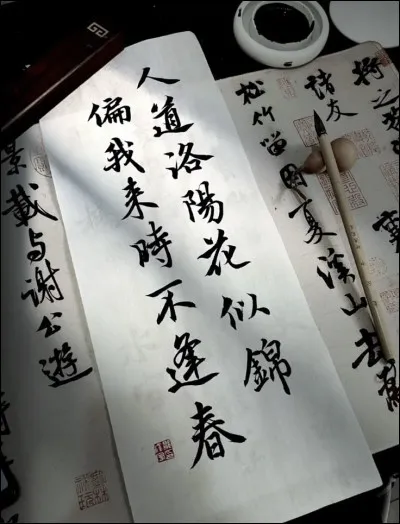 人道洛陽花似錦
偏我来時不逢春
松竹留因夏
溪山去為
諸友
景載与謝公遊